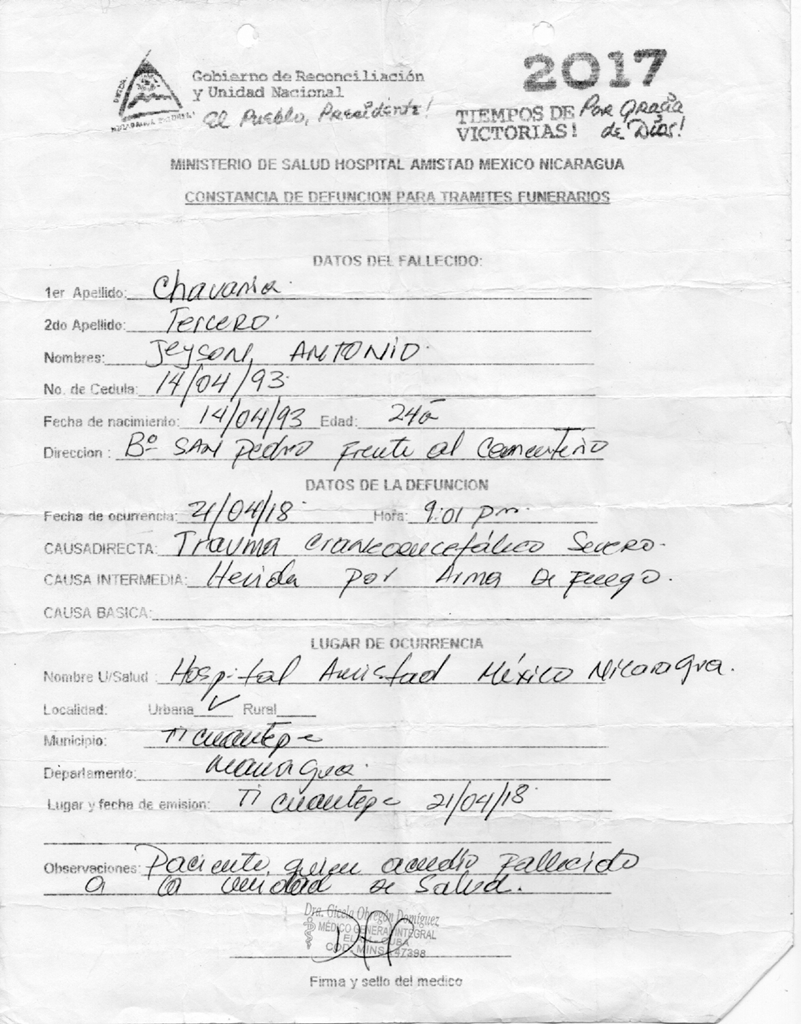 Gobierno de Reconciliación
y Unidad Nacional
El Pueblo, Presidente!
2017
TIEMPOS DE
VICTORIAS!
Por Gracia
de Dios!
MINISTERIO DE SALUD HOSPITAL AMISTAD MEXICO NICARAGUA
CONSTANCIA DE DEFUNCION PARA TRAMITES FUNERARIOS
DATOS DEL FALLECIDO:
1er Apellido: Chavarria
2do Apellido: Tercero
Nombres: Jeyson ANTONIO
No. de Cedula: 14/04/93
Fecha de nacimiento: 14/04/93 Edad: 24a
Direccion: Bº SAN Pedro frente al Cementerio
DATOS DE LA DEFUNCION
Fecha de ocurrencia: 21/04/18 Hora: 9:01 pm
CAUSADIRECTA: Trauma craneoencefálico Severo.
CAUSA INTERMEDIA: Herida por Arma De fuego.
CAUSA BASICA:
LUGAR DE OCURRENCIA
Nombre U/Salud: Hospital Amistad México Nicaragua.
Localidad: Urbana ✓ Rural
Municipio: Ticuantepe
Departamento: Managua
Lugar y fecha de emision: Ticuantepe 21/04/18
Observaciones: Paciente quien acudio fallecido
a la unidad de Salud.
Dra. Gicela Obregón Domiguez
MEDICO GENERAL INTEGRAL
COD. MINSA 47398
Firma y sello del medico